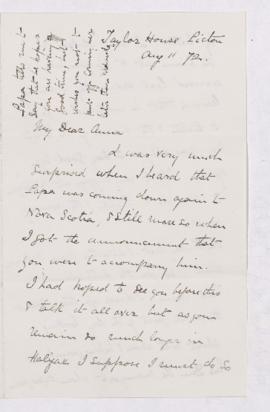 Taylor House, Pictou
Aug 11 72.
My Dear Anna
I was very much
surprised when I heard that
Papa was coming down again to
Nova Scotia, & still more so when
I got the announcement that
you were to accompany him.
I had hoped to see you before this
& talk it all over but as you
remain so much longer in
Halifax I suppose I must do so
Papa tells me to
say that he hopes
you are having a
good time, but
wishes you not to
put off coming
later than